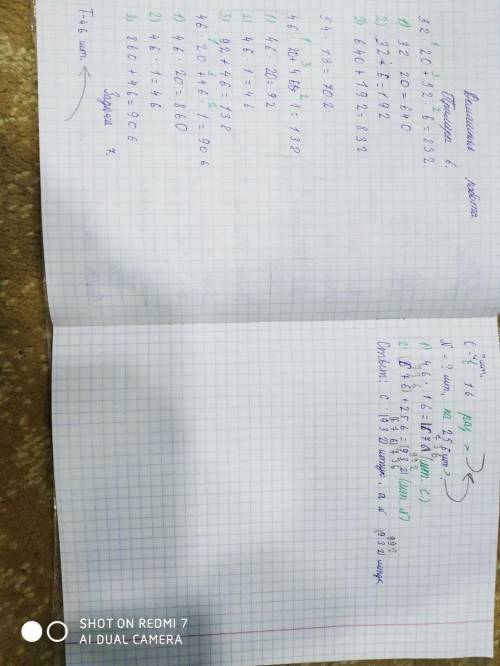 Домашняя работа
Примеры 6.
32 · 20 + 32 · 6 = 832
1) 32 · 20 = 640
2) 32 · 6 = 192
3) 640 + 192 = 832
54 · 13 = 702
46 · 20 + 46 · 1 = 138
1) 46 20 = 92
2) 46 · 1 = 46
3) 92 + 46 = 138
46 · 20 + 46 · 1 = 906
1) 46 · 20 = 860
2) 46 · 1 = 46
3) 860 + 46 = 906
Задача 7.
Т - 46 шт.
С - ? шт. в 16 раз >
N - ? шт, на 256 шт >
1) 46 · 16 = 736 (шт. С)
2) 736 + 256 = 992 (шт. N)
Ответ: С 736 штук, а N 992 штук
SHOT ON REDMI 7
AI DUAL CAMERA